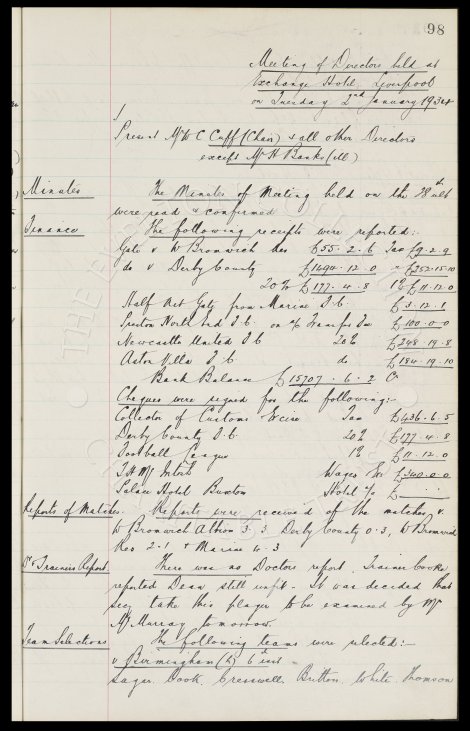 98
Meeting of Directors held at
Exchange Hotel, Liverpool
on Tuesday 2nd January 1934
Present Mr W C Cuff (Chair) & all other Directors
except Mr H Banks (ill)
Minutes The Minutes of Meeting held on the 28th ult
were read & confirmed
Finance The following receipts were reported:-
Gate v W Bromwich Res £55-2-6 Tax £9-2-9
do v Derby County £1494-12-0 " £252-15-10
20% £177-4-8 1% £11-12-0
Half Net Gate from Marine F.C. £3-12-1
Preston North End F.C. on a/c Transfer Fee £100-0-0
Newcastle United F.C. 20% £248-19-8
Aston Villa F.C. do £184-19-10
Bank Balance £15707-6-2 Cr
Cheques were signed for the following:-
Collector of Customs Excise Tax £436-6-5
Derby County F.C. 20% £177-4-8
Football League 1% £11-12-0
Wages &c £340-0-0
Palace Hotel Buxton Hotel a/c £
Reports of Matches. Reports were received of the matches, v.
W Bromwich Albion 3.3 Derby County 0.3, W Bromwich
Res 2-1 & Marine 4-3
Dr & Trainers Report There was no Doctors report. Trainer Cooke
reported Dean still unfit. It was decided that
Secy take this player to be examined by Mr
McMurray tomorrow.
Team Selections The following teams were selected:-
v Birmingham (h) 6th inst -
Sagar. Cook. Cresswell. Britton. White. Thomson